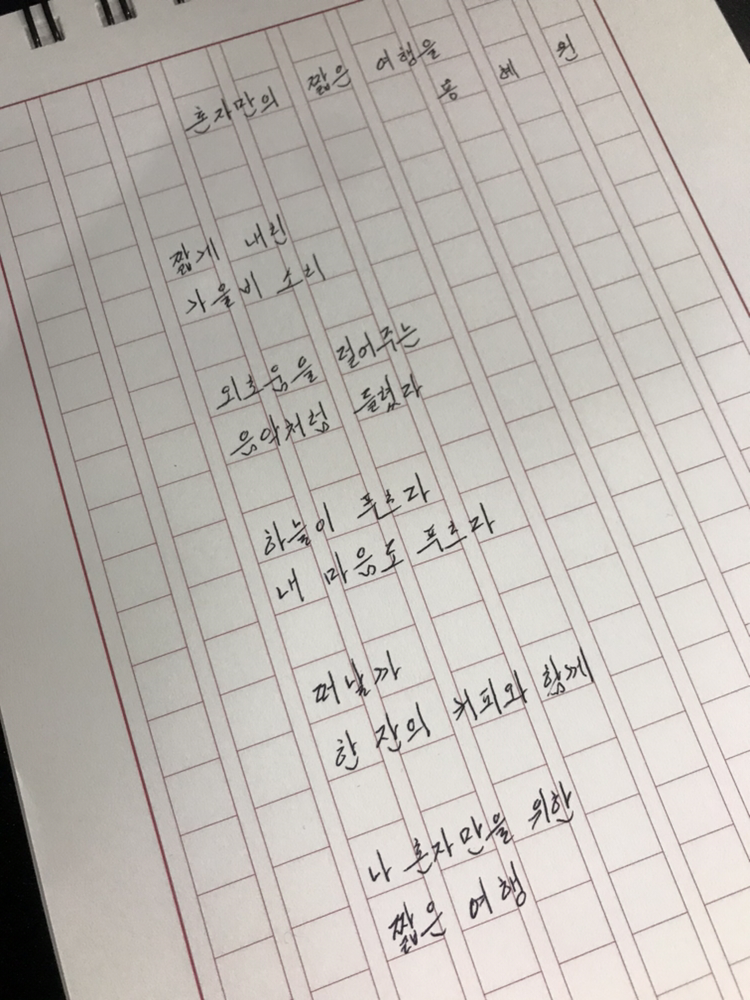 혼자만의 짧은 여행을
용 혜 원
짧게 내린
가을비 소리
외로움을 덜어주는
음악처럼 들렸다
하늘이 푸르다
내 마음도 푸르다
떠날까
한 잔의 커피와 함께
나 혼자만을 위한
짧은 여행